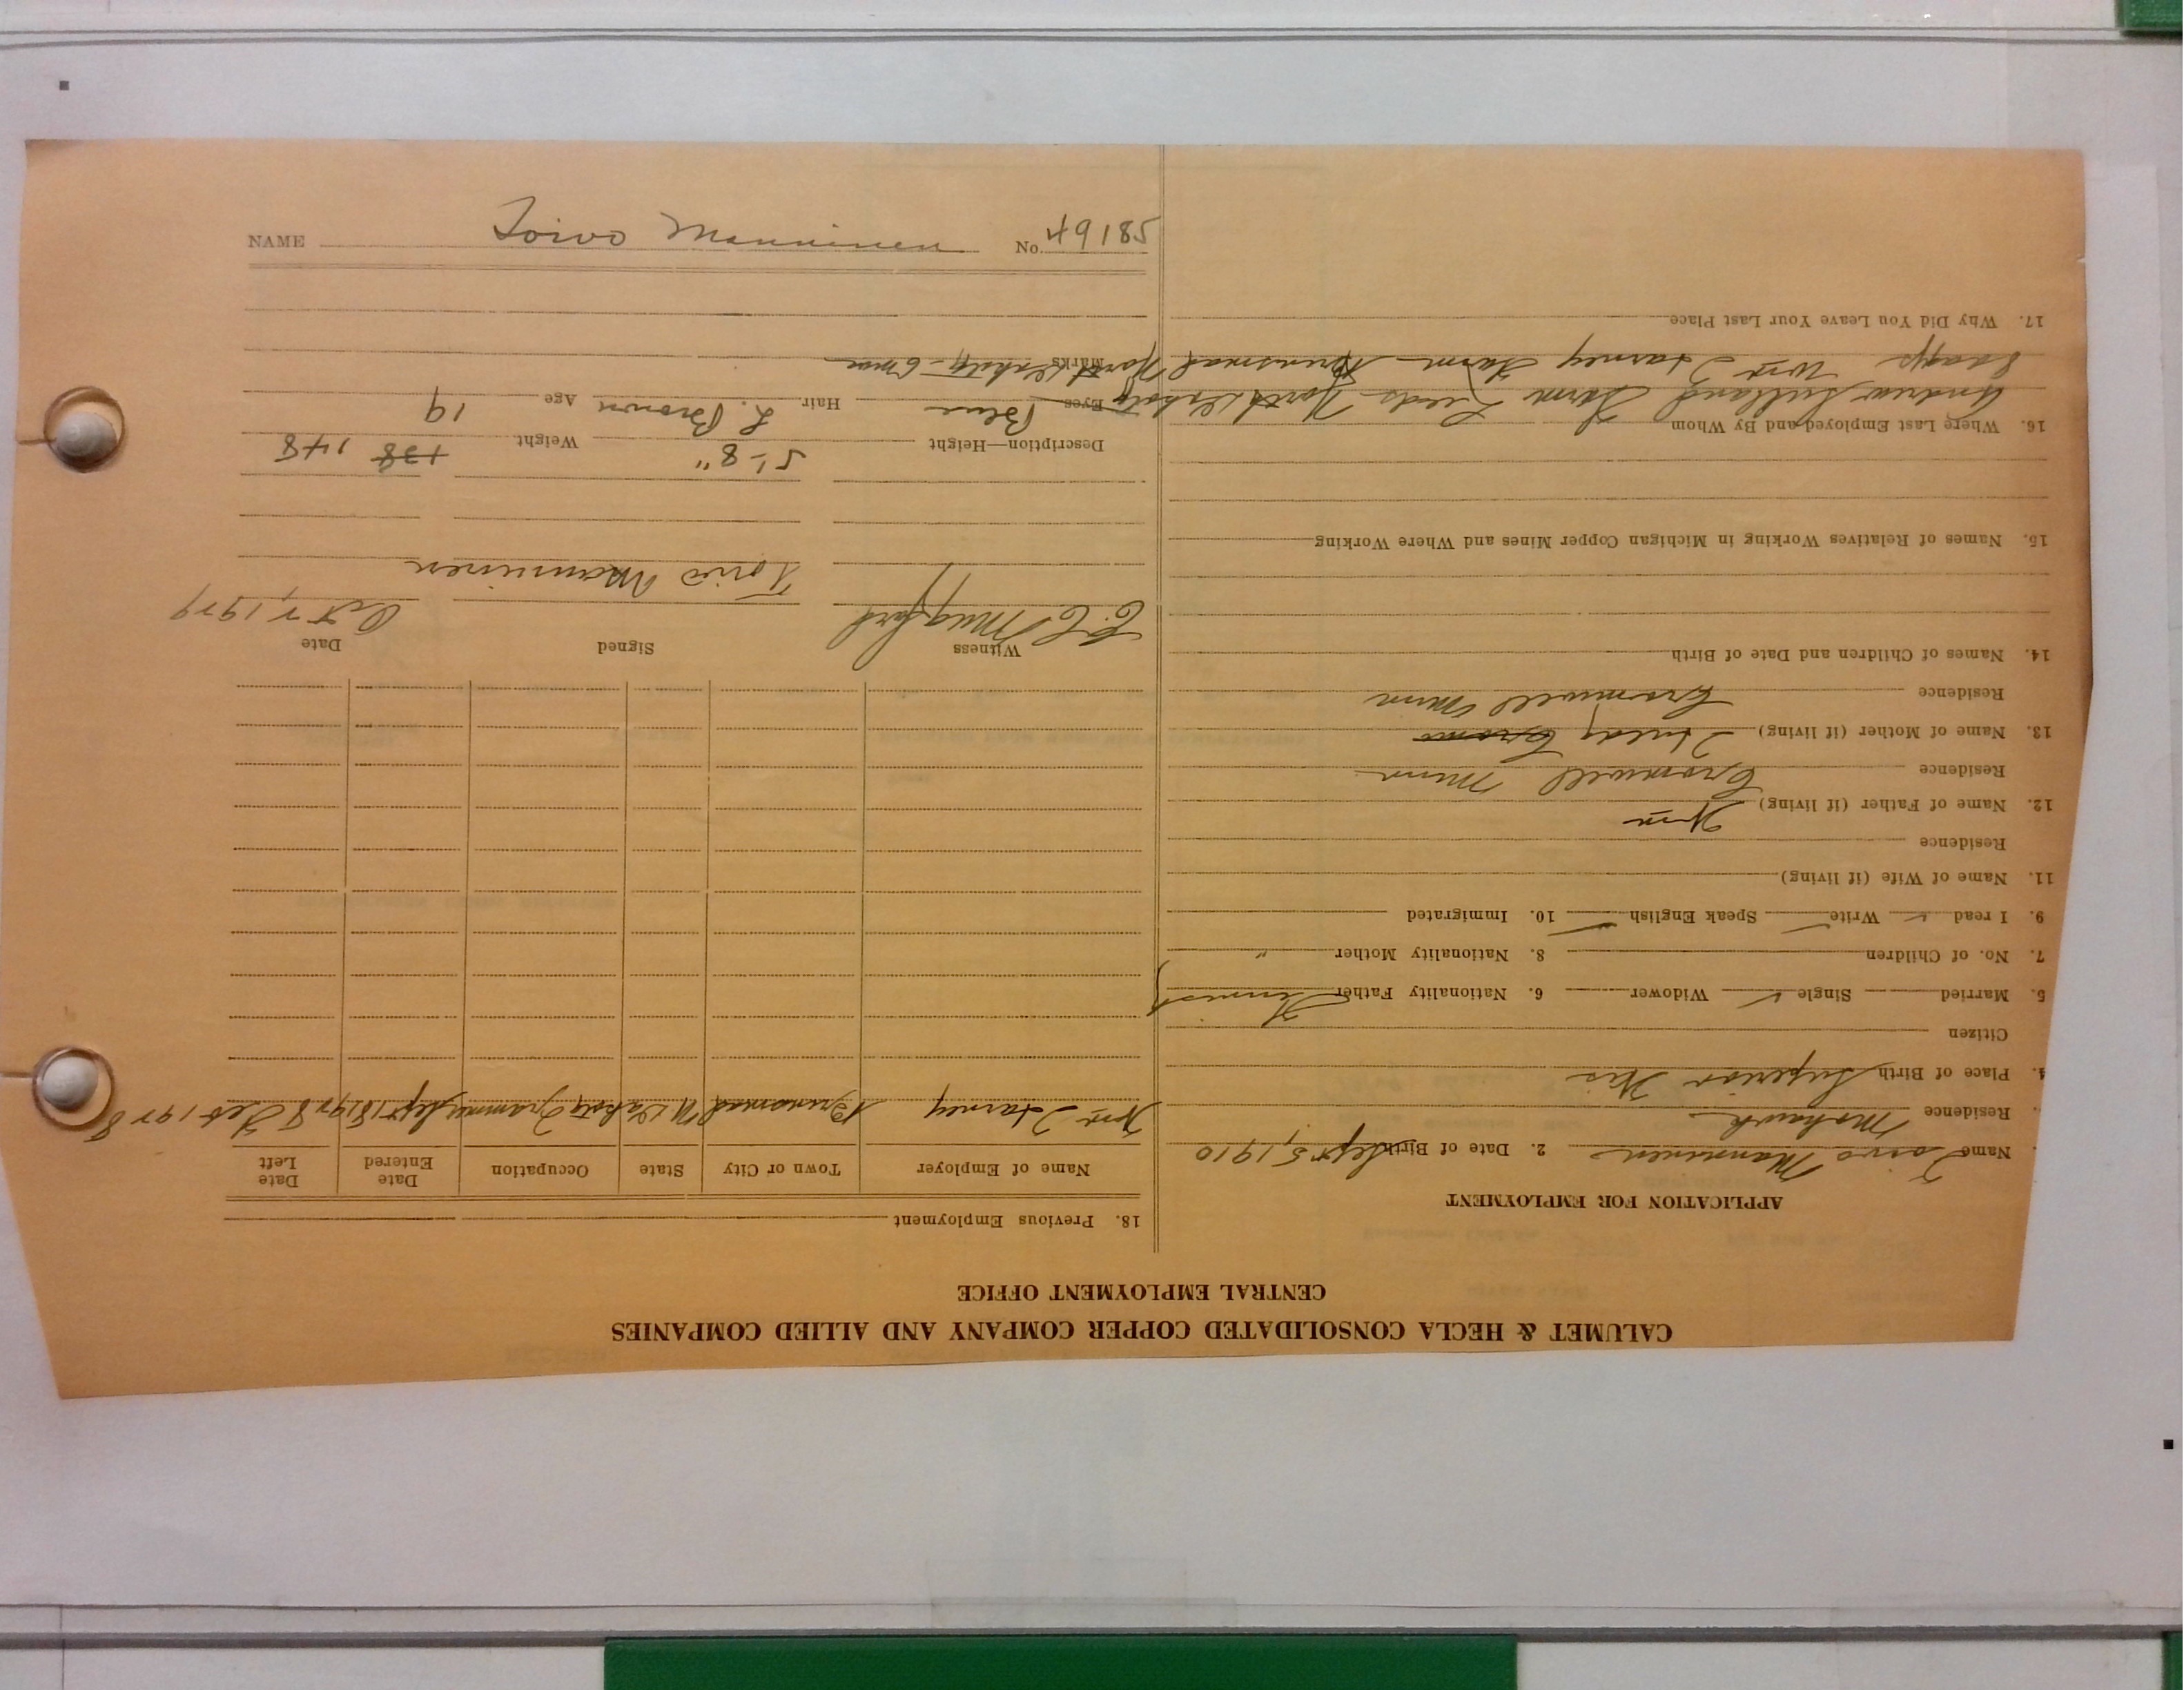 CALUMET & HECLA CONSOLIDATED COPPER COMPANY AND ALLIED COMPANIES
CENTRAL EMPLOYMENT OFFICE
APPLICATION FOR EMPLOYMENT
Name Toivo Manninen 2. Date of Birth Sept 5, 1910
Residence Mohawk
4. Place of Birth Superior Wis
Citizen
5. Married Single ✓ Widower 6. Nationality Father Finnish
7. No. of Children 8. Nationality Mother "
9. I read ✓ Write ✓ Speak English ✓ 10. Immigrated
11. Name of Wife (if living)
Residence
12. Name of Father (if living)
Residence Cromwell Minn
13. Name of Mother (if living) Hulda
Residence Cromwell Minn
14. Names of Children and Date of Birth
15. Names of Relatives Working in Michigan Copper Mines and Where Working
16. Where Last Employed and By Whom
Andrew Farm Leeds North Dakota
Harney Farm North Dakota - 6 mos
17. Why Did You Leave Your Last Place
18. Previous Employment
Name of Employer Town or City State Occupation Date Entered Date Left
Harney N Dakota Sept 18 1928 Feb 1928
Witness Signed Date
C. C. Mugford Toivo Manninen Oct 7, 1929
Description—Height 5'-8" Weight 138 148
Eyes Blue Hair L. Brown Age 19
Marks
NAME Toivo Manninen No. 49185